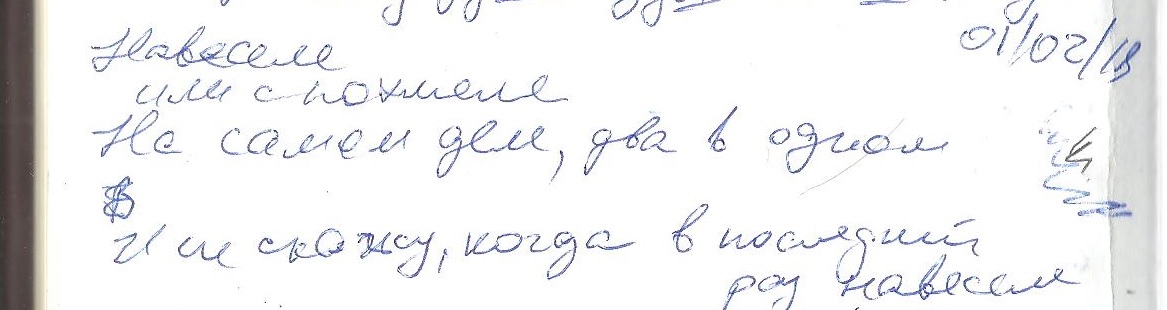 01/02/13
Навеселе
или с похмела
На самом деле, два в одном
И не скажу, когда в последний
раз навеселе